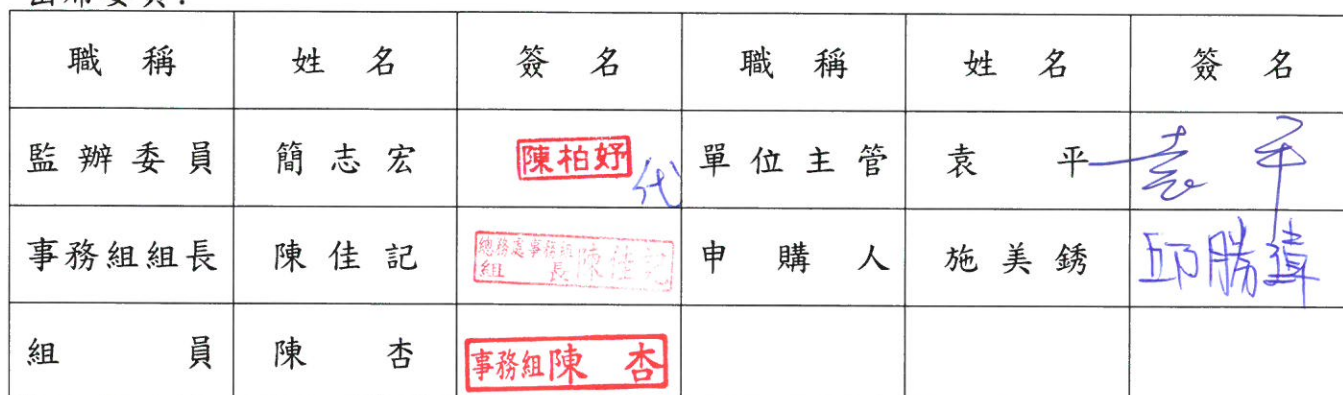 出席委員：
職稱 姓名 簽名 職稱 姓名 簽名
監辦委員 簡志宏 陳柏妤 代 單位主管 袁平 袁平
事務組組長 陳佳記 總務處事務組組長陳佳記 申購人 施美銹 邱勝瑋
組員 陳杏 事務組陳杏